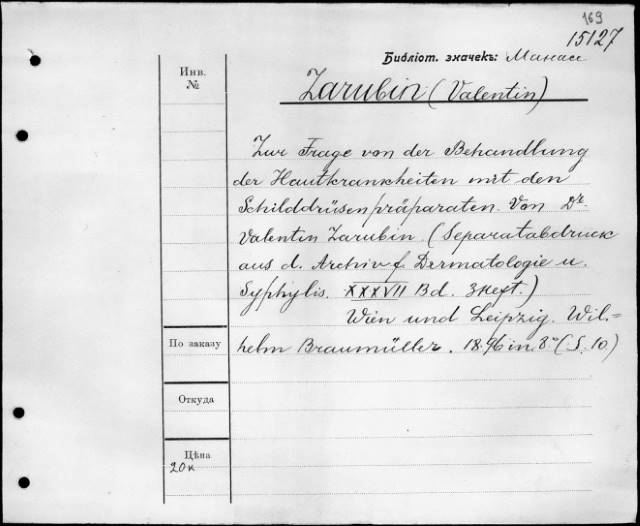 169
15127
Библіот. значекъ: Манасс
Инв.
№
Zarubin (Valentin)
Zur Frage von der Behandlung
der Hautkrankheiten mit den
Schilddrüsenpräparaten. Von Dr.
Valentin Zarubin (Separatabdruck
aus d. Archiv f. Dermatologie u.
Syphylis. XXXVII Bd. 3 Heft.)
Wien und Leipzig. Wil-
По заказу
helm Braumüller. 1896 in 8º (S. 10)
Откуда
Цѣна
20 к